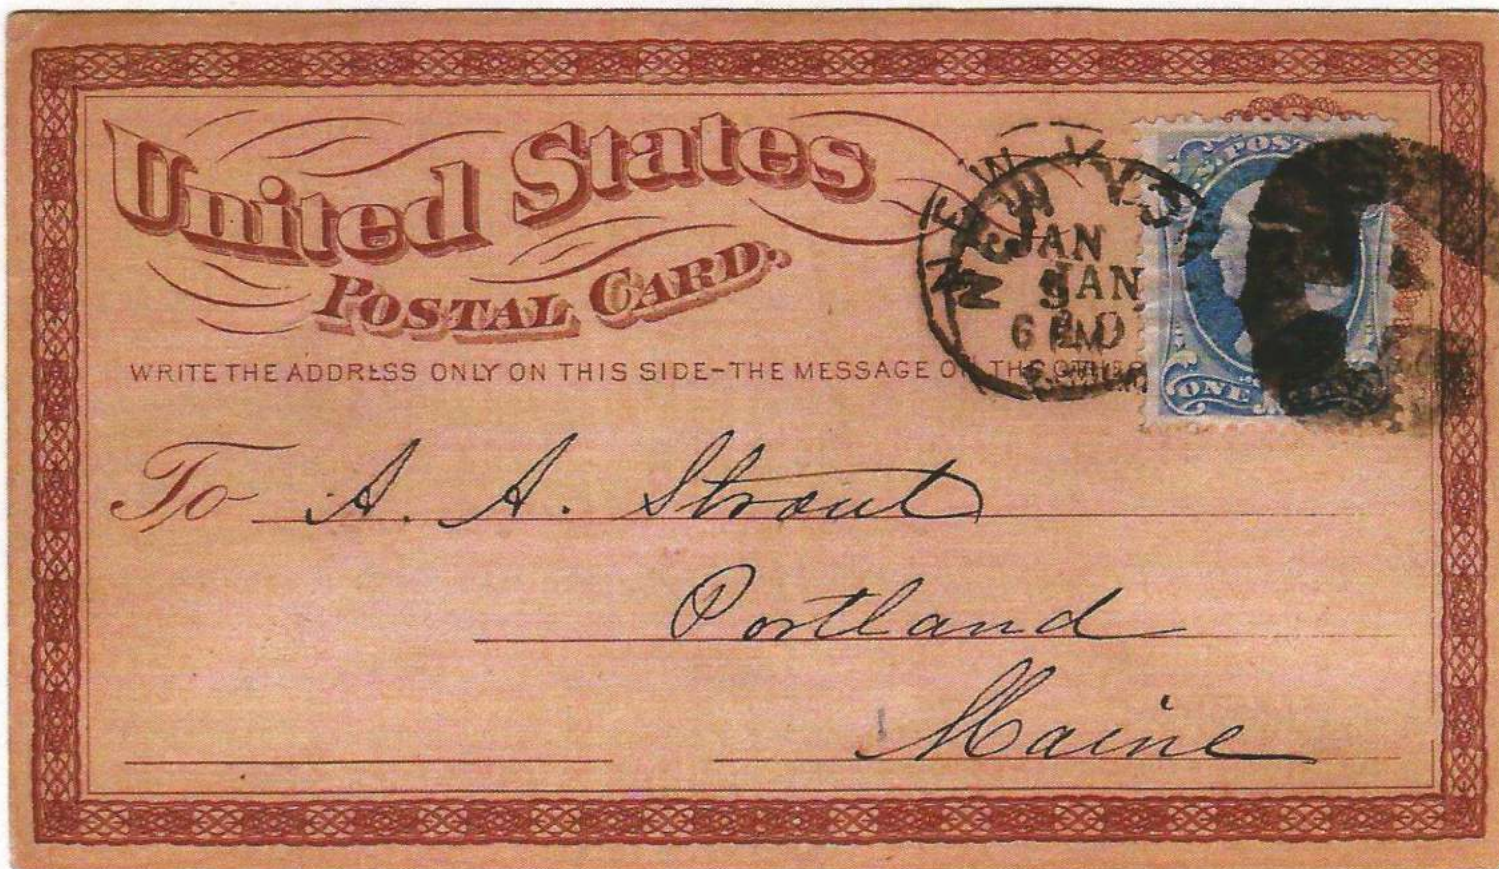 United States
POSTAL CARD.
WRITE THE ADDRESS ONLY ON THIS SIDE–THE MESSAGE ON THE OTHER
NEW YORK
NEW YO
JAN
JAN
9
6 PM
POST
ONE
To A. A. Strout
Portland
Maine